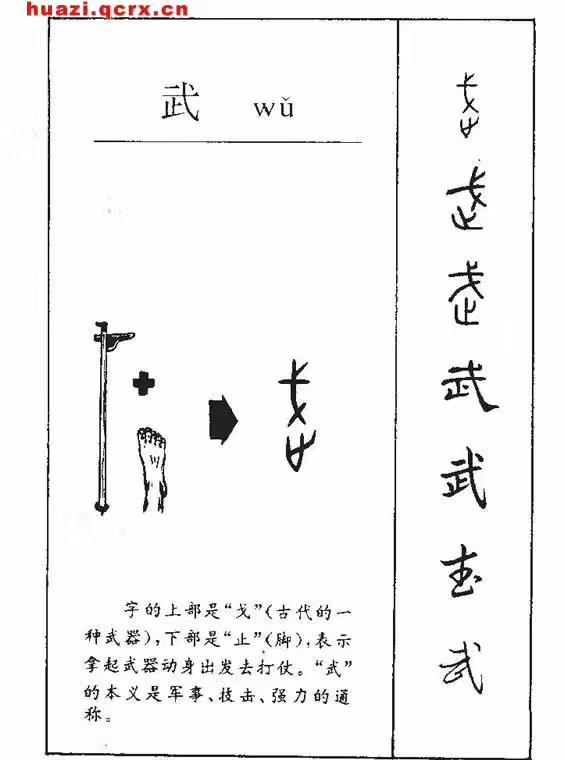 huazi.qcrx.cn
武 wǔ
字的上部是“戈”（古代的一
种武器），下部是“止”（脚），表示
拿起武器动身出发去打仗。“武”
的本义是军事、技击、强力的通
称。
武
武
武
武
武
武
武